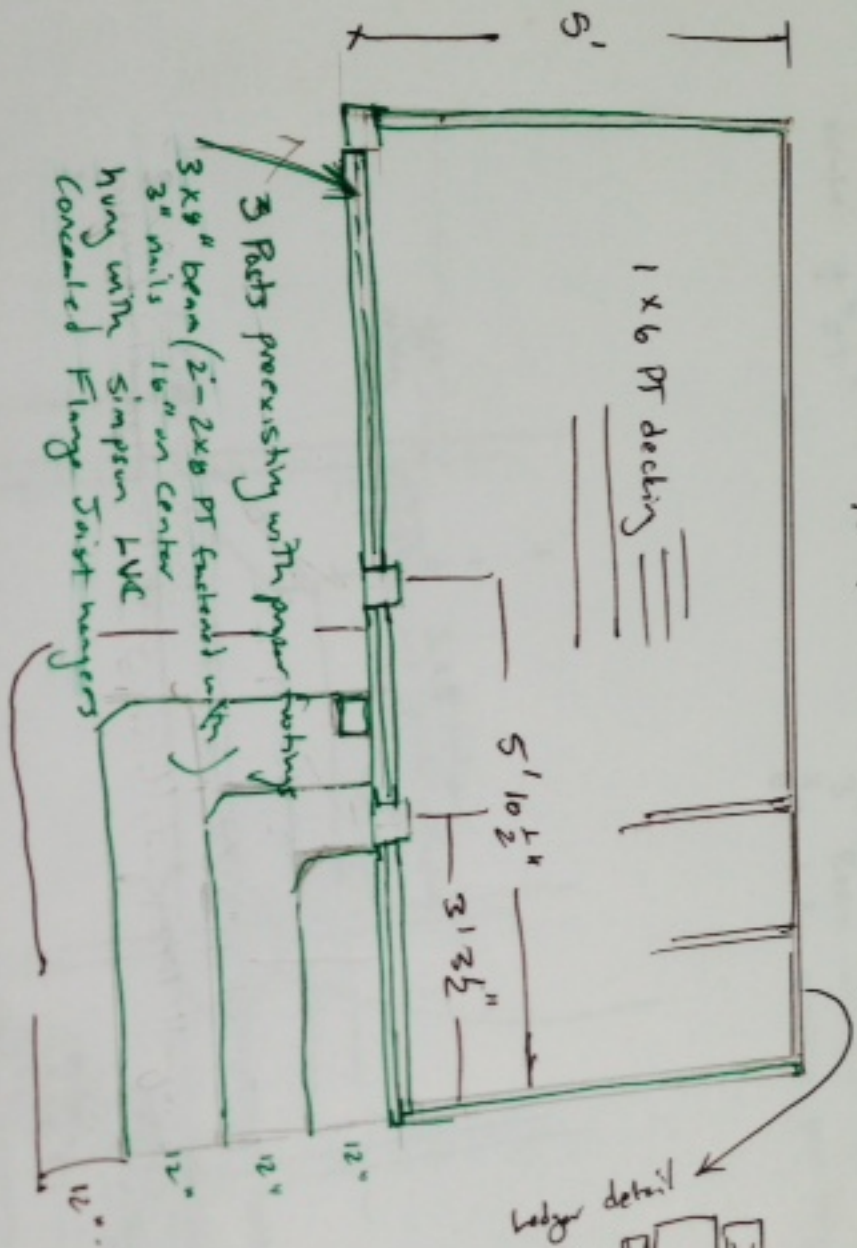 5'
1 x 6 PT decking
5' 10 1/2"
3' 3 1/2"
3 Posts preexisting with proper footings
3 x 8" beam (2 - 2x8 PT fastened with)
3" nails 16" on center
hung with simpson LUC
Concealed Flange Joist hangers
12"
12"
12"
12"
Ledger detail